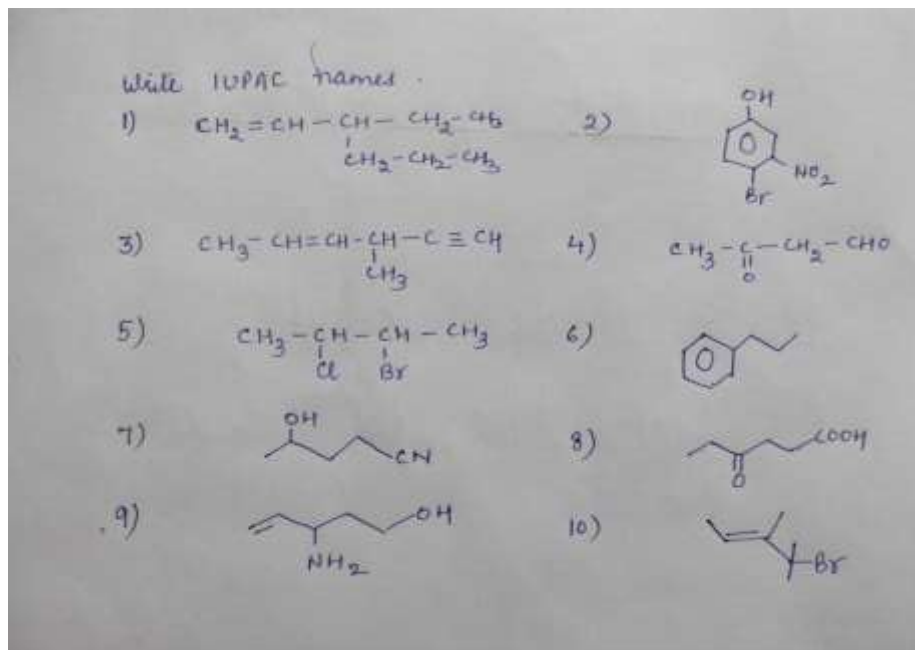 Write IUPAC names.
1) CH₂=CH-CH-CH₂-CH₃
CH₂-CH₂-CH₃
2) OH
NO₂
Br
3) CH₃-CH=CH-CH-C≡CH
CH₃
4) CH₃-C-CH₂-CHO
O
5) CH₃-CH-CH-CH₃
Cl Br
6)
7) OH
CN
8) COOH
O
9) OH
NH₂
10) Br